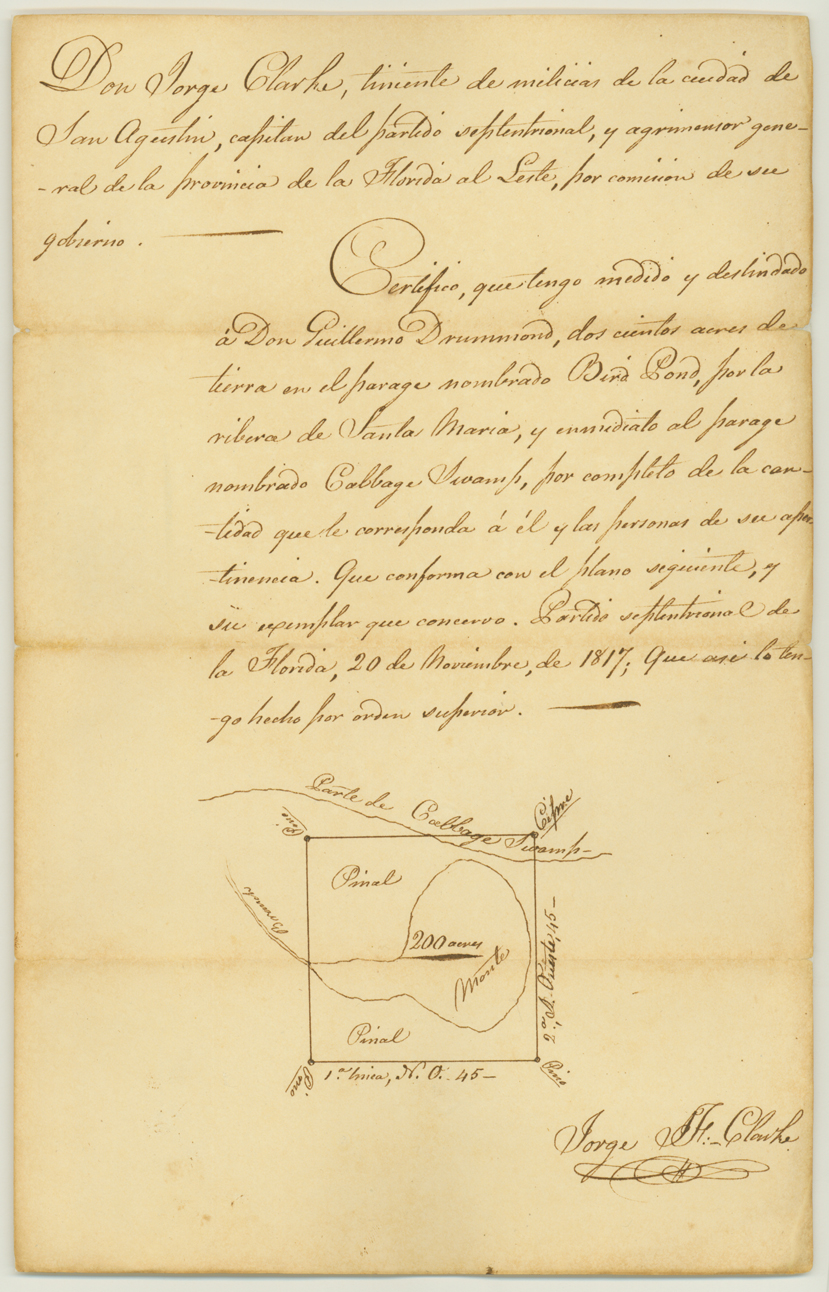 Don Jorge Clarke, tiniente de milicias de la ciudad de
San Agustin, capitan del partido septentrional, y agrimensor gene-
-ral de la provincia de la Florida al Leste, por comision de su
gobierno.
Certifico, que tengo medido y deslindado
á Don Guillermo Drummond, dos cientos acres de
tierra en el parage nombrado Bird Pond, por la
ribera de Santa Maria, y enmediato al parage
nombrado Cabbage Swamp, por completo de la can-
-tidad que le corresponda á él y las personas de su aper-
-tinencia. Que conforma con el plano siguiente, y
su exemplar que concervo. Partido septentrional de
la Florida, 20 de Noviembre, de 1817; Que asi lo ten-
-go hecho por orden superior.
Parte de Cabbage Swamp-
Pino
Cipre
Pinal
Branch
200 acres
Monte
2.a S. Oueste, 45-
Pinal
Pino
1.a linea, N. O. 45-
Pino
Jorge J. F. Clarke